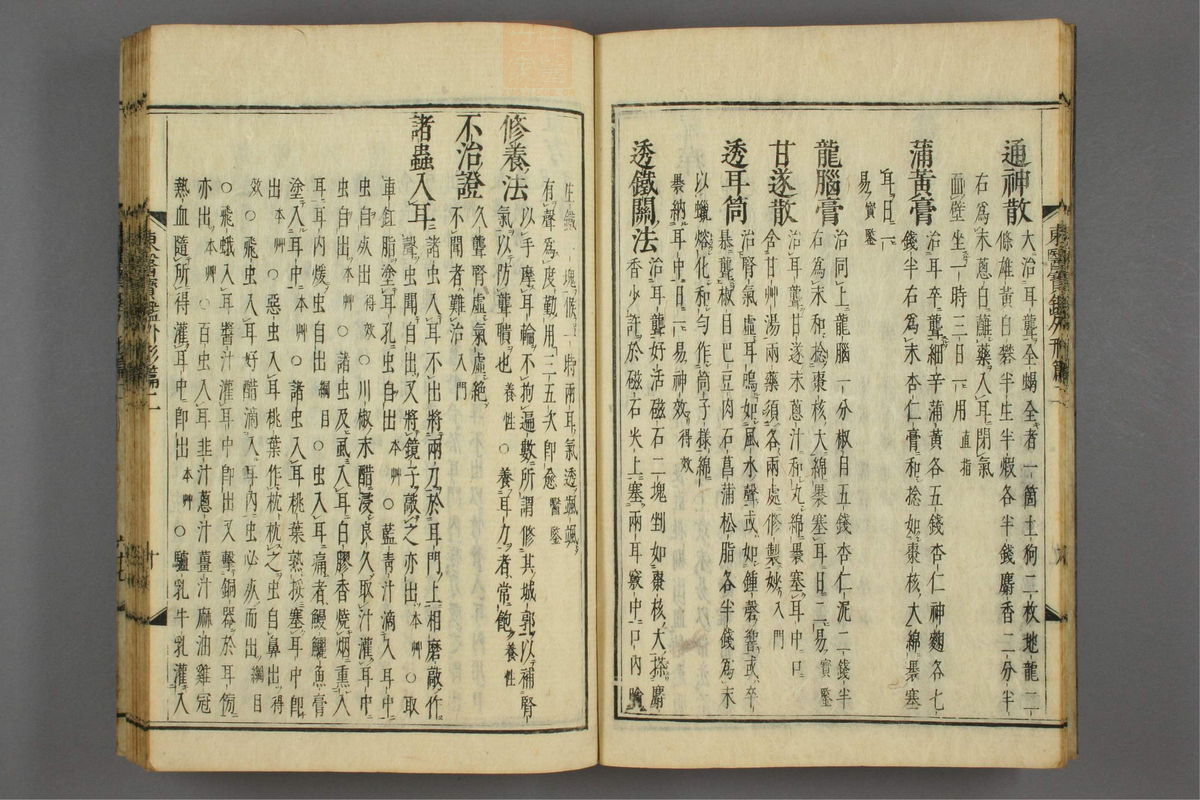 通神散 大治耳聾全蝎全者一箇土狗二枚地龍二
條雄黃白礬半生半煆各半錢麝香二分半
右爲末蔥白蘸藥入耳閉氣
面壁坐一時三日一用 直指
蒲黃膏 治耳卒聾細辛蒲黃各五錢杏仁神麴各七
錢半右爲末杏仁膏和捻如棗核大綿裹塞
耳日一
易 實鑒
龍腦膏 治同上龍腦一分椒目五錢杏仁泥二錢半
右爲末和捻棗核大綿裹塞耳日二易 實鑒
甘遂散 治耳聾甘遂末蔥汁和丸綿裹塞耳中口
含甘艸湯兩藥須各兩處修製妙 入門
透耳筒 治腎氣虛耳鳴如風水聲或如鍾磬響或卒
暴聾椒目巴豆肉石菖蒲松脂各半錢爲末
以蠟熔化和勻作筒子樣綿
裹納耳中日一易神效 得效
透鐵關法 治耳聾好活磁石二塊剉如棗核大搽麝
香少許於磁石尖上塞兩耳竅中口內噙
生鐵一塊候一時兩耳氣透颯颯
有聲爲度勤用三五次卽愈 醫鑒
修養法 以手摩耳輪不拘遍數所謂修其城郭以補腎
氣以防聾聵也 養性 ○養耳力者常飽 養性
不治證 久聾腎虛氣虛絶
不聞者難治 入門
諸蟲入耳 諸虫入耳不出將兩刀於耳門上相磨敲作
聲虫聞自出又將鏡子敲之亦出 本艸 ○取
車釭脂塗耳孔虫自出 本艸 ○藍靑汁滴入耳中
虫自死出 得效 ○川椒末醋浸良久取汁灌耳中
虫自出 本艸 ○諸虫及虱入耳白膠香燒烟熏入
耳耳內煖虫自出 綱目 ○虫入耳痛者鰻鱺魚膏
塗入耳中 本艸 ○諸虫入耳桃葉熟挼塞耳中卽
出 本艸 ○惡虫入耳桃葉作枕枕之虫自鼻出 得
效 ○飛虫入耳好醋滴入耳內虫必死而出 綱目
○飛蛾入耳醬汁灌耳中卽出又擊銅器於耳傍
亦出 本艸 ○百虫入耳韭汁蔥汁薑汁麻油雞冠
熱血隨所得灌耳中卽出 本艸 ○驢乳牛乳灌入
東醫寶鑑外形篇二
十